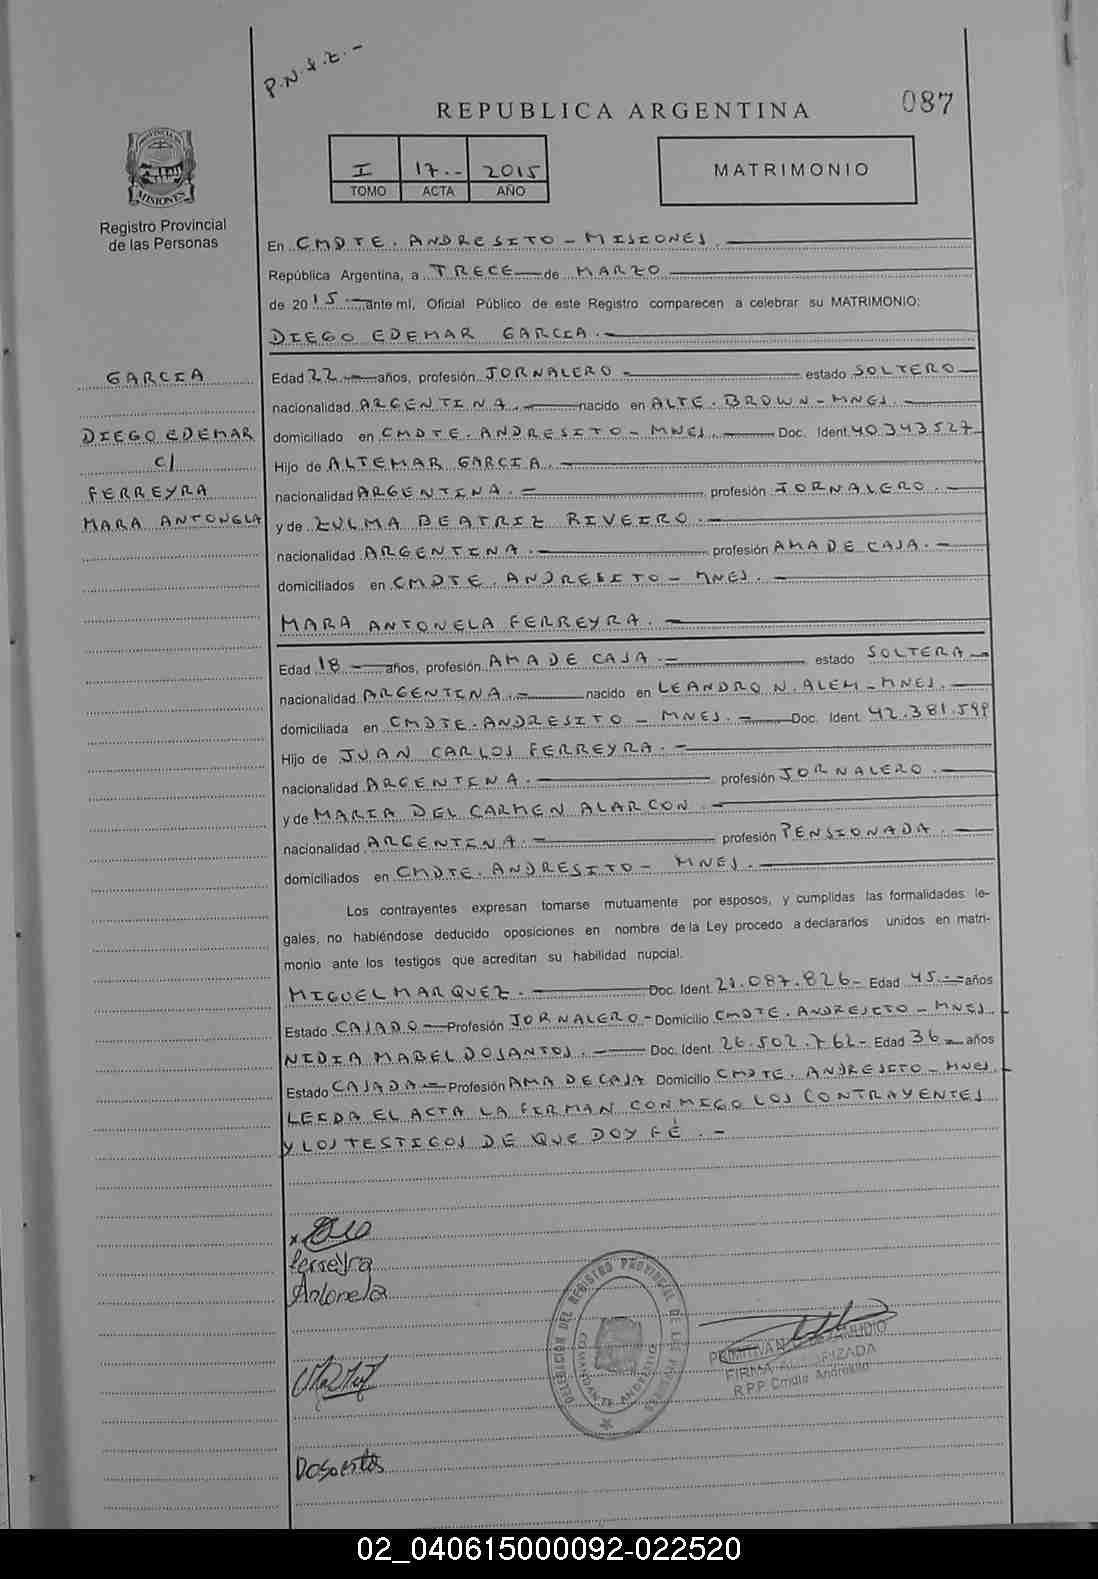 P.N.y.E.-
REPUBLICA ARGENTINA
087
I 17.- 2015
TOMO ACTA AÑO
MATRIMONIO
PROVINCIA DE
MISIONES
Registro Provincial
de las Personas
En CMDTE. ANDRESITO - MISIONES.
República Argentina, a TRECE de MARZO
de 2015.- ante mí, Oficial Público de este Registro comparecen a celebrar su MATRIMONIO:
DIEGO EDEMAR GARCIA.-
GARCIA
DIEGO EDEMAR
c/
FERREYRA
MARA ANTONELA
Edad 22.- años, profesión JORNALERO - estado SOLTERO -
nacionalidad ARGENTINA.- nacido en ALTE. BROWN - MNES.-
domiciliado en CMDTE. ANDRESITO - MNES.- Doc. Ident. 40.343.527
Hijo de ALTEMAR GARCIA.-
nacionalidad ARGENTINA.- profesión JORNALERO.-
y de ZULMA BEATRIZ RIVEIRO.-
nacionalidad ARGENTINA.- profesión AMA DE CASA.-
domiciliados en CMDTE. ANDRESITO - MNES.-
MARA ANTONELA FERREYRA.-
Edad 18.- años, profesión AMA DE CASA.- estado SOLTERA -
nacionalidad ARGENTINA.- nacido en LEANDRO N. ALEM - MNES.-
domiciliada en CMDTE. ANDRESITO - MNES.- Doc. Ident. 42.381.599
Hijo de JUAN CARLOS FERREYRA.-
nacionalidad ARGENTINA.- profesión JORNALERO.-
y de MARIA DEL CARMEN ALARCON.-
nacionalidad ARGENTINA.- profesión PENSIONADA.-
domiciliados en CMDTE. ANDRESITO - MNES.-
Los contrayentes expresan tomarse mutuamente por esposos, y cumplidas las formalidades le-
gales, no habiéndose deducido oposiciones en nombre de la Ley procedo a declararlos unidos en matri-
monio ante los testigos que acreditan su habilidad nupcial.
MIGUEL MARQUEZ.- Doc. Ident. 21.087.826- Edad 45.- años
Estado CASADO - Profesión JORNALERO - Domicilio CMDTE. ANDRESITO - MNES
NIDIA MABEL DOSANTOS.- Doc. Ident. 26.502.762- Edad 36 - años
Estado CASADA - Profesión AMA DE CASA Domicilio CMDTE. ANDRESITO - MNES.-
LEIDA EL ACTA LA FIRMAN CONMIGO LOS CONTRAYENTES
Y LOS TESTIGOS DE QUE DOY FÉ.-
x
Ferreyra
Antonela
DELEGACION DEL REGISTRO PROVINCIAL DE LAS PERSONAS
COMANDANTE ANDRESITO
FIRMA AUTORIZADA
R.P.P. Cmdte. Andresito
Dosantos
02_040615000092-022520